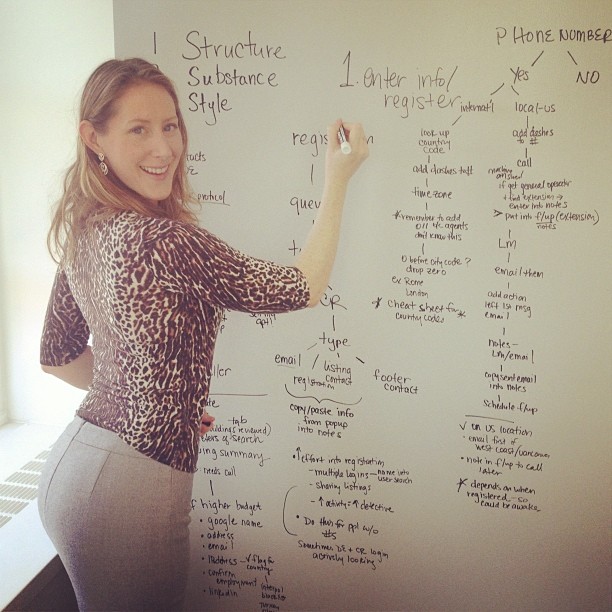 Structure
Substance
Style
1. enter info/
register
PHONE NUMBER
Yes
NO
internat'l
local-us
look up
country
code
add dashes
to #
call
if get general operator
+ find extension →
enter into notes
> put into f/up (extension)
notes
time zone
*remember to add
don't know this
0 before city code?
drop zero
ex Rome
London
* cheat sheet for *
country codes
Lm
email them
add action
left us msg
email
notes-
Lm/email
copy sent email
into notes
schedule f/up
✓ on US location
• email first if
west coast/vancouver
• note in f/up to call
later
* depends on when
registered - so
could be awake
regis
que
ER
type
email
listing
contact
footer
contact
registration
copy/paste info
from popup
into notes
• ↑ effort into registration
- multiple logins - name into
user search
- sharing listings
- ↑ activity = ↑ detective
• Do this for ppl w/o
#s
Sometimes DE + CR login
actively looking
protocol
tab
of search
summary
needs call
higher budget
• google name
• address
• email
• IP address - ✓ flag for
country
• confirm
employment
• linkedin
internal